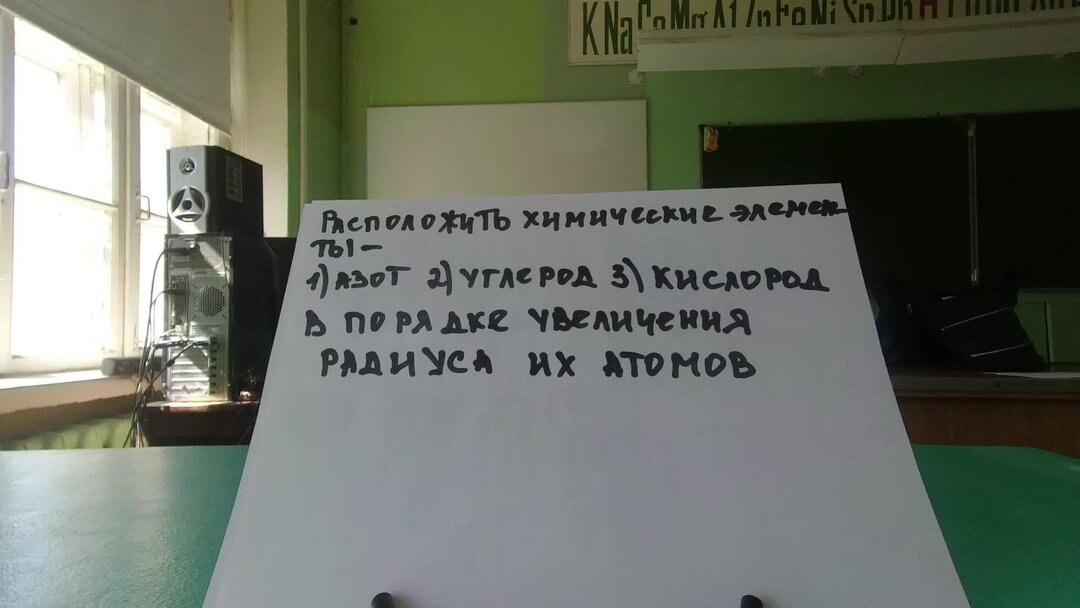 K Na Ca Mg Al Zn Fe Ni Sn Pb H
РАСПОЛОЖИТЬ ХИМИЧЕСКИЕ ЭЛЕМЕН-
ТЫ –
1) АЗОТ 2) УГЛЕРОД 3) КИСЛОРОД
В ПОРЯДКЕ УВЕЛИЧЕНИЯ
РАДИУСА ИХ АТОМОВ